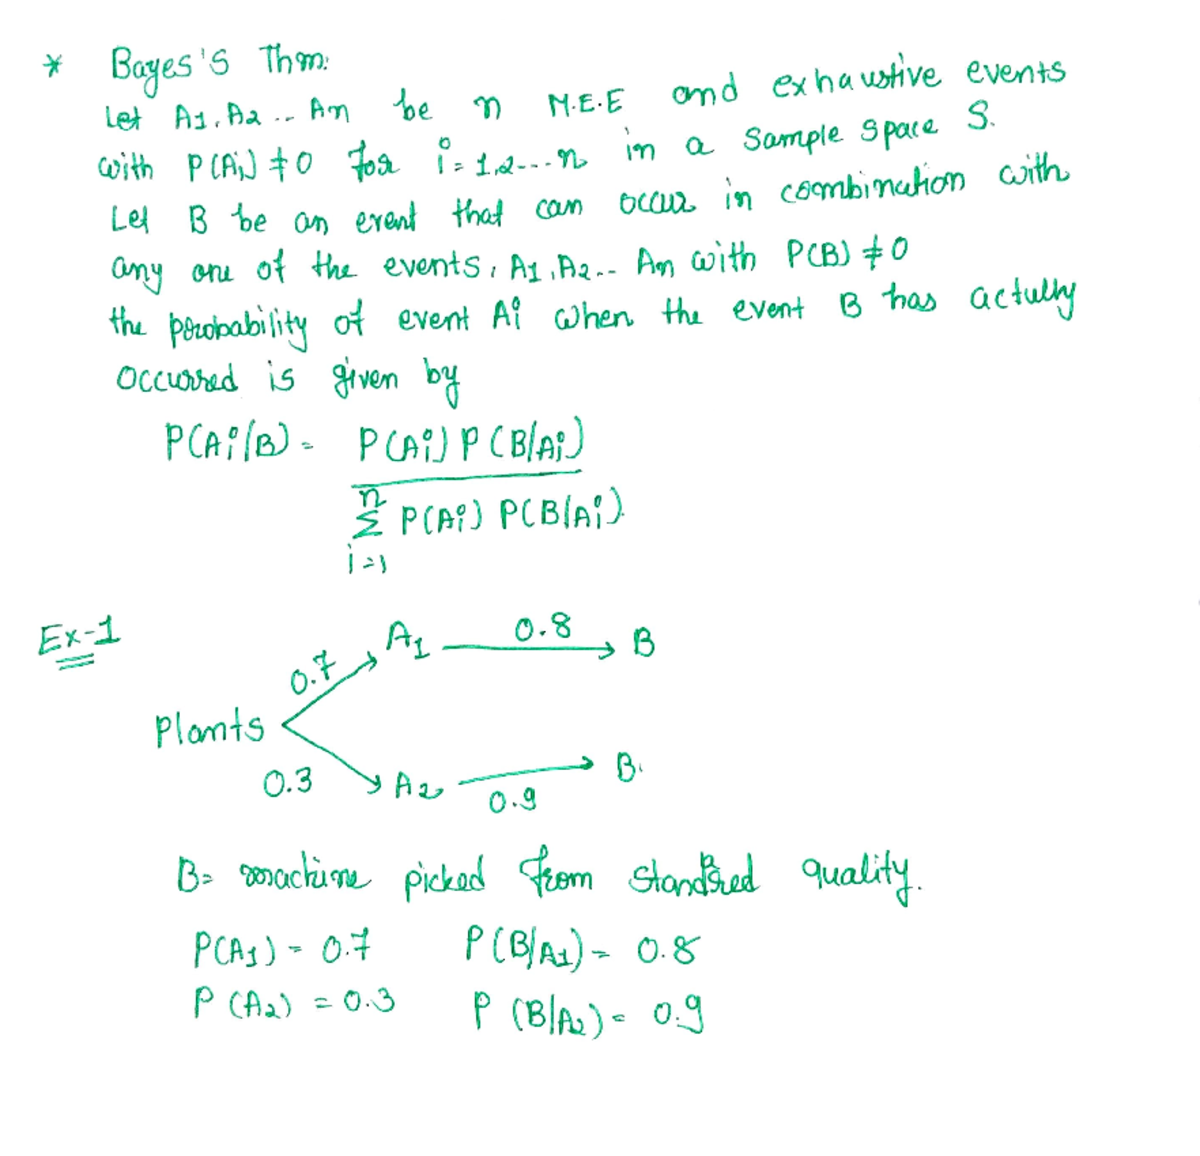 * Bayes's Thm:
Let A1, A2 .. An be n M.E.E and exhaustive events
with P(Ai) ≠ 0 for i = 1,2---n in a sample space S.
Let B be an event that can occur in combination with
any one of the events, A1, A2.. An with P(B) ≠ 0
the probability of event Ai when the event B has actully
occurred is given by
P(Ai/B) = P(Ai) P(B/Ai)
n
Σ P(Ai) P(B/Ai).
i=1
Ex-1
0.7 A1 0.8 B
Plants
0.3 A2 0.9 B.
B= machine picked from standered quality.
P(A1) = 0.7 P(B/A1) = 0.8
P(A2) = 0.3 P(B/A2) = 0.9